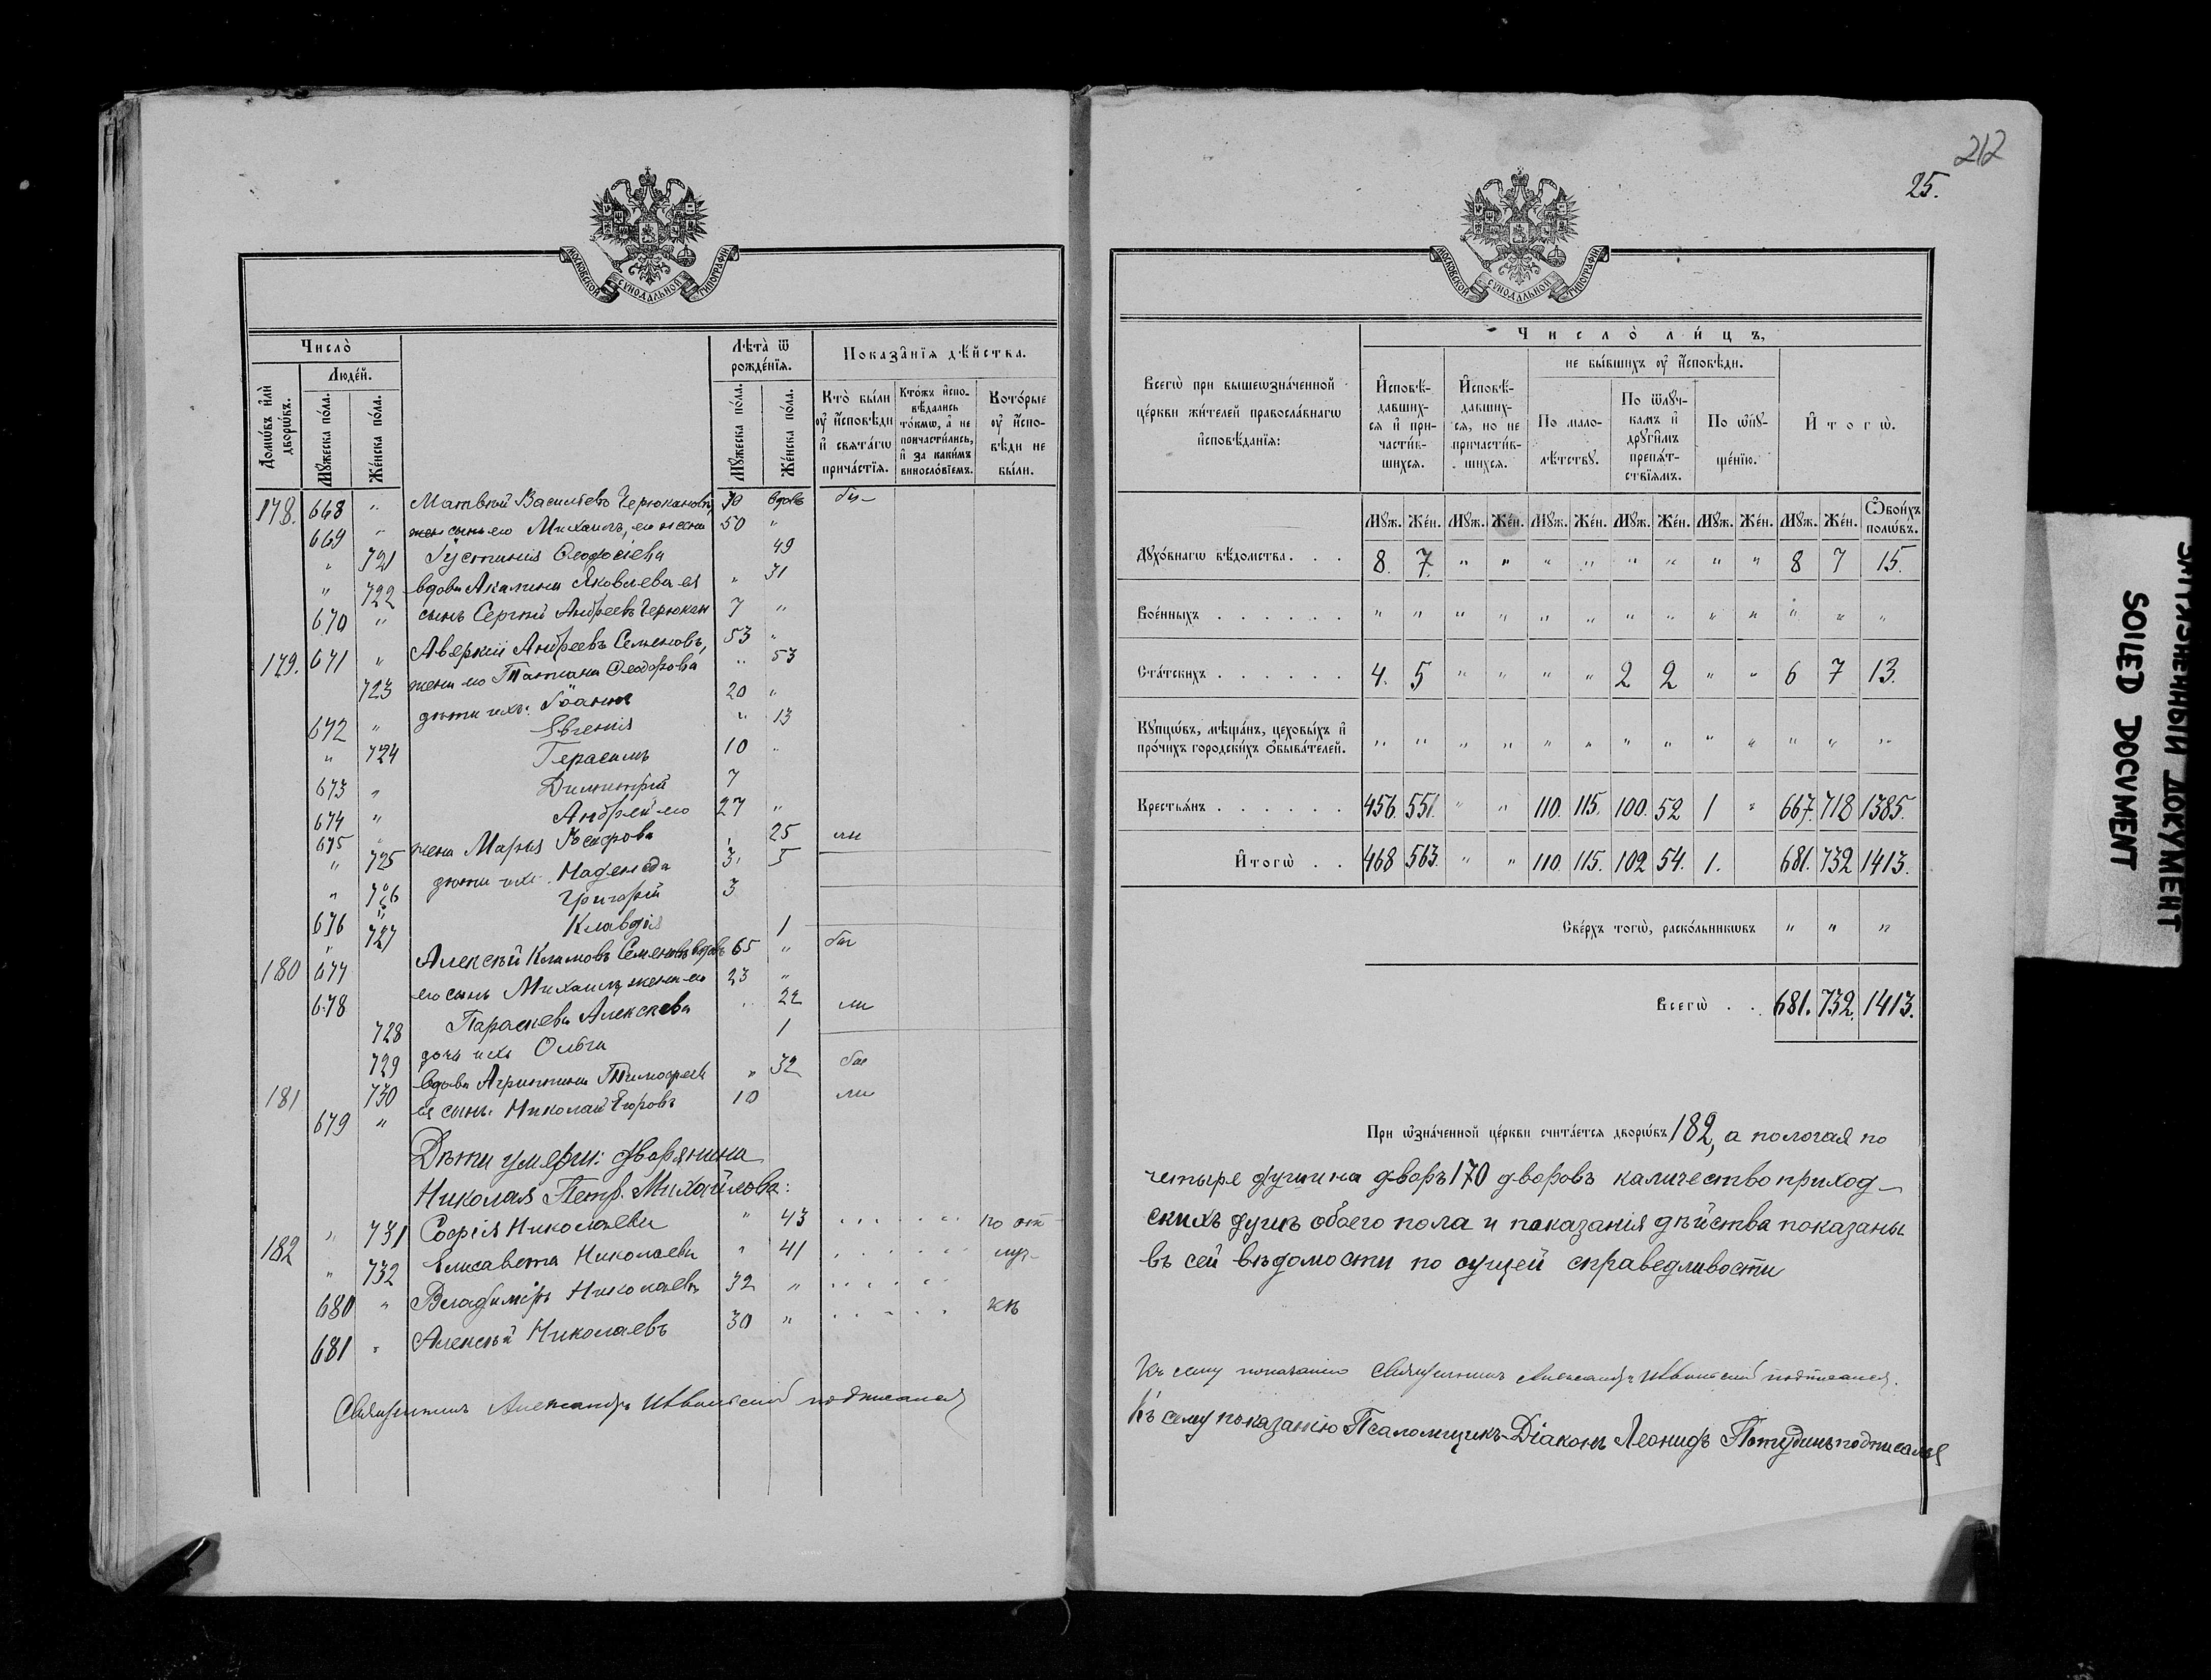 МОСКОВСКОЙ СУНОДАЛЬНОЙ ТИПОГРАФІИ
Число̀
Лѣта̀ ѿ рожде́нїѧ.
Показа̑нїѧ дѣ́йства.
Домѡ́въ и҆лѝ дворѡ́въ.
Люде́й.
Мꙋ́жеска по́ла.
Же́нска по́ла.
Мꙋ́жеска по́ла.
Же́нска по́ла.
Кто̀ бы́ли ᲂу҆ и҆сповѣди и҆ свѧта́гѡ прича́стїѧ.
Кто́жъ и҆спо-вѣ́дались то́кмѡ, а҆ не причасти́лись, и҆ за каки́мъ винослові́емъ.
Кото́рые ᲂу҆ и҆спо-вѣди не бы́ли.
178. 668 " Матвѣй Васильевъ Черюкановъ, 70 вдовъ бы-
669 " сынъ его Михаилъ, его жена 50 "
" 721 Іустинія Ѳеодосіева 49
" 722 вдова Акилина Яковлева ея " 31
670 " сынъ Сергѣй Андреевъ Черюкан 7 "
179. 671 " Аверкій Андреевъ Семеновъ, 53 "
723 жена его Татіана Ѳеодорова " 53
672 " дѣти ихъ: Іоаннъ 20 "
" 724 Евгенія " 13
673 " Герасимъ 10 "
674 " Димитрій 7
675 " Андрей его 27 "
" 725 жена Марія 25 ли
" 726 дѣти ихъ: Надежда 5
676 " Григорій 3
" 727 Клавдія 1
180 677 Алексѣй Климовъ Семеновъ вдовъ 65 " бы
678 его сынъ Михаилъ, жена его 23 "
728 Параскева Алексѣева 22 ли
729 дочь ихъ Ольга 1
181 730 вдова Агриппина Тимофеев " 32 бы
679 " ея сынъ Николай Егоровъ 10 ли
Дѣти умерш: дворянина
Николая Петр. Михайлова:
182 " 731 Софія Николаева " 43 по от
" 732 Елисавета Николаева " 41 луч-
680 " Владиміръ Николаевъ 32 " кѣ
681 " Алексѣй Николаевъ 30 "
Священникъ Александръ подписался
212
25.
МОСКОВСКОЙ СУНОДАЛЬНОЙ ТИПОГРАФІИ
Всегѡ̀ при вышеѡзна́ченной це́ркви жи́телей правосла́внагѡ и҆сповѣ́данїѧ:
Число̀ ли́цъ,
не бы́вшихъ ᲂу҆ и҆сповѣди.
И҆сповѣ́-давших-сѧ и҆ при-части́в-шихсѧ.
И҆сповѣ́-давших-сѧ, но не причасти́в-шихсѧ.
По мало-лѣ́тствꙋ.
По ѿлꙋ́ч-камъ и҆ дрꙋги̑мъ препѧ́т-ствїѧмъ.
По ѡ҆пꙋ-ще́нїю.
И҆тогѡ̀.
Мꙋж. Же́н. Мꙋж. Же́н. Мꙋж. Же́н. Мꙋж. Же́н. Мꙋж. Же́н. Мꙋж. Же́н. Ѻ҆бои́хъ полѡ́въ.
Дꙋхо́внагѡ вѣ́домства. . . 8. 7. " " " " " " " " 8 7 15.
Вое́нныхъ . . . . . . " " " " " " " " " " " " "
Ста́тскихъ . . . . . . 4. 5 " " " " 2 2 " " 6 7 13.
Кꙋпцѡ́въ, мѣща́нъ, цеховы́хъ и҆ про́чихъ городски́хъ ѻ҆быва́телей. " " " " " " " " " " " " "
Крестьѧ́нъ . . . . . . 456. 551. " " 110. 115. 100. 52 1 " 667. 718 1385.
И҆тогѡ̀ . . 468 563. " " 110. 115. 102 54. 1. 681. 732 1413.
Све́рхъ тогѡ̀, раско́льникѡвъ " " "
Всегѡ̀ . . 681. 732. 1413.
При ѡ҆зна́ченной це́ркви счита́етсѧ дворѡ́въ 182, а пологая по
четыре души на дворъ 170 дворовъ каличество приход-
скихъ душъ обоего пола и показанія дѣйства показаны
въ сей вѣдомости по сущей справедливости
Къ сему показанію Священникъ Александръ подписался.
Къ сему показанію Псаломщикъ-Діаконъ Леонидъ подписался
ЗАГРЯЗНЕННЫЙ ДОКУМЕНТ
SOILED DOCUMENT